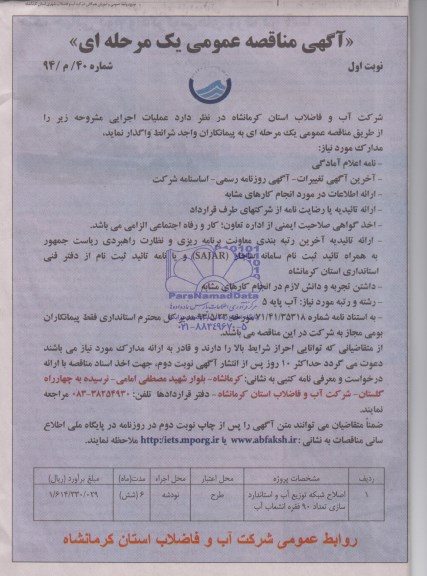 «آگهی مناقصه عمومی یک مرحله ای»
نوبت اول
شماره ۴۰/ م /۹۴
شرکت آب و فاضلاب استان کرمانشاه در نظر دارد عملیات اجرایی مشروحه زیر را
از طریق مناقصه عمومی یک مرحله ای به پیمانکاران واجد شرائط واگذار نماید.
مدارک مورد نیاز:
- نامه اعلام آمادگی
- آخرین آگهی تغییرات- آگهی روزنامه رسمی- اساسنامه شرکت
- ارائه اطلاعات در مورد انجام کارهای مشابه
- ارائه تائیدیه یا رضایت نامه از شرکتهای طرف قرارداد
- اخذ گواهی صلاحیت ایمنی از اداره تعاون؛ کار و رفاه اجتماعی الزامی می باشد.
- ارائه تائیدیه آخرین رتبه بندی معاونت برنامه ریزی و نظارت راهبردی ریاست جمهور
به همراه تائید ثبت نام سامانه ساجار (SAJAR) و یا نامه تائید ثبت نام از دفتر فنی
استانداری استان کرمانشاه
- داشتن تجربه و دانش لازم در انجام کارهای مشابه
- رشته و رتبه مورد نیاز: آب پایه ۵
- به استناد نامه شماره ۷۱/۴۱/۳۵۳۱۸ مورخه ۹۳/۵/۲۳ مدیر کل محترم استانداری فقط پیمانکاران
بومی مجاز به شرکت در این مناقصه می باشند.
از متقاضیانی که توانایی احراز شرایط بالا را دارند و قادر به ارائه مدارک مورد نیاز می باشند
دعوت می گردد حداکثر ۱۰ روز پس از انتشار آگهی نوبت دوم، جهت اخذ اسناد مناقصه با ارائه
درخواست و معرفی نامه کتبی به نشانی: کرمانشاه- بلوار شهید مصطفی امامی- نرسیده به چهارراه
گلستان- شرکت آب و فاضلاب استان کرمانشاه - دفتر قراردادها تلفن: ۳۸۲۵۴۹۳۰-۰۸۳ مراجعه
نمایند.
ضمناً متقاضیان می توانند متن آگهی را پس از چاپ نوبت دوم در روزنامه در پایگاه ملی اطلاع
سانی مناقصات به نشانی : www.abfaksh.ir یا http:/iets.mporg.ir ملاحظه نمایند.
ردیف مشخصات پروژه محل اعتبار محل اجراء مدت(ماه) مبلغ برآورد (ریال)
۱ اصلاح شبکه توزیع آب و استاندارد سازی تعداد ۹۰ فقره انشعاب آب طرح نودشه ۶ (شش) ۱/۶۱۳/۳۳۰/۰۲۹
روابط عمومی شرکت آب و فاضلاب استان کرمانشاه
ParsNamadData
۰۲۱-۸۸۳۴۹۶۷۰-۵